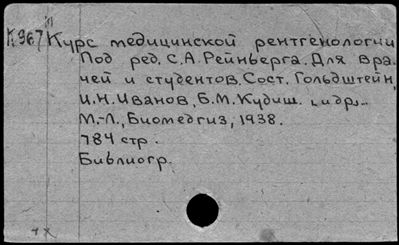 К967 Курс медицинской рентгенологии
Под ред. С.А. Рейнберга. Для вра-
чей и студентов. Сост. Гольдштейн,
И.Н. Иванов, Б.М. Кудиш. и др.
М.-Л., Биомедгиз, 1938.
784 стр.
Библиогр.